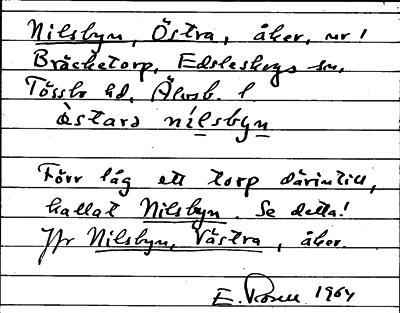 Nilsbyn, Östra, åker, nr 1
Bräcketorp, Edsleskogs sn,
Tössbo hd, Älvsb. l.
òstara nílsbyn
Förr låg ett torp därintill,
kallat Nilsbyn. Se detta!
Jfr Nilsbyn, Västra, åker.
E. Rosell 1964